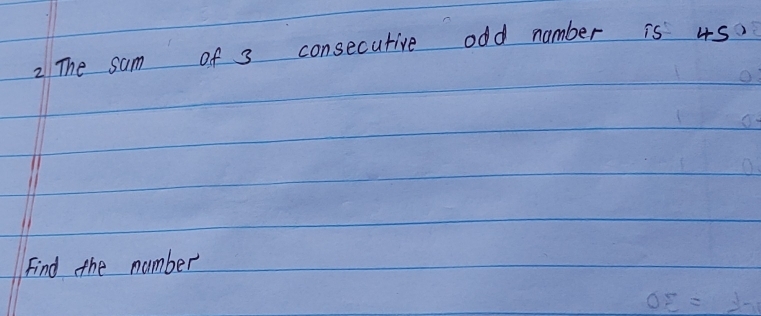 2 The sum of 3 consecutive odd number is 45.
Find the number